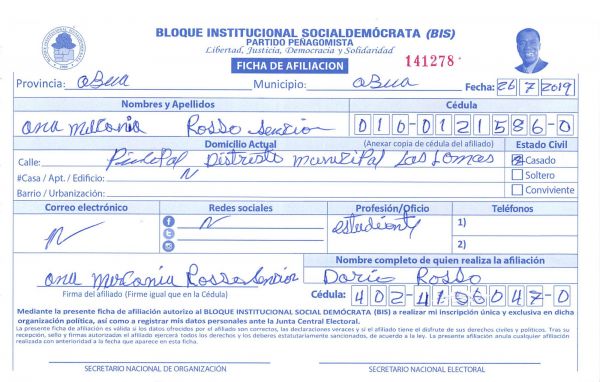 BLOQUE INSTITUCIONAL SOCIALDEMÓCRATA (BIS)
PARTIDO PEÑAGOMISTA
Libertad, Justicia, Democracia y Solidaridad
FICHA DE AFILIACION
141278
Provincia: Azua Municipio: Azua Fecha: 26/7/2019
Nombres y Apellidos Cédula
Ana Rosso Sención 010-0121586-0
Domicilio Actual (Anexar copia de cédula del afiliado) Estado Civil
Calle: Distrito Municipal Las Lomas Casado
#Casa / Apt. / Edificio: N Soltero
Barrio / Urbanización: Conviviente
Correo electrónico Redes sociales Profesión/Oficio Teléfonos
N N estudiante 1)
2)
Nombre completo de quien realiza la afiliación
Ana Rosso Sención Dario Rosso
Firma del afiliado (Firme igual que en la Cédula) Cédula: 402-4156047-0
Mediante la presente ficha de afiliación autorizo al BLOQUE INSTITUCIONAL SOCIAL DEMÓCRATA (BIS) a realizar mi inscripción única y exclusiva en dicha
organización política, así como a registrar mis datos personales ante la Junta Central Electoral.
La presente ficha de afiliación es válida si los datos ofrecidos por el afiliado son correctos, las declaraciones veraces y si el afiliado tiene el disfrute de sus derechos civiles y políticos. Tras su
recepción, sello y firmas autorizadas el afiliado ejercerá todos los derechos y los deberes estatutariamente sancionados, de acuerdo a la ley. La presente afiliación anula cualquier afiliación
realizada con anterioridad a la fecha que aparece en esta ficha.
SECRETARIO NACIONAL DE ORGANIZACIÓN SECRETARIO NACIONAL ELECTORAL